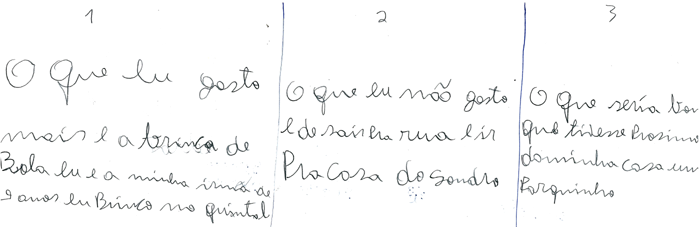 1
O que eu gosto
mais e a brinca de
Bola eu e a minha irmã de
9 anos eu Brinco no quintal
2
O que eu não gosto
e de sair na rua e ir
Pra casa do Sandro
3
O que seria bon
que tivesse Prosimo
da minha casa um
Parquinho